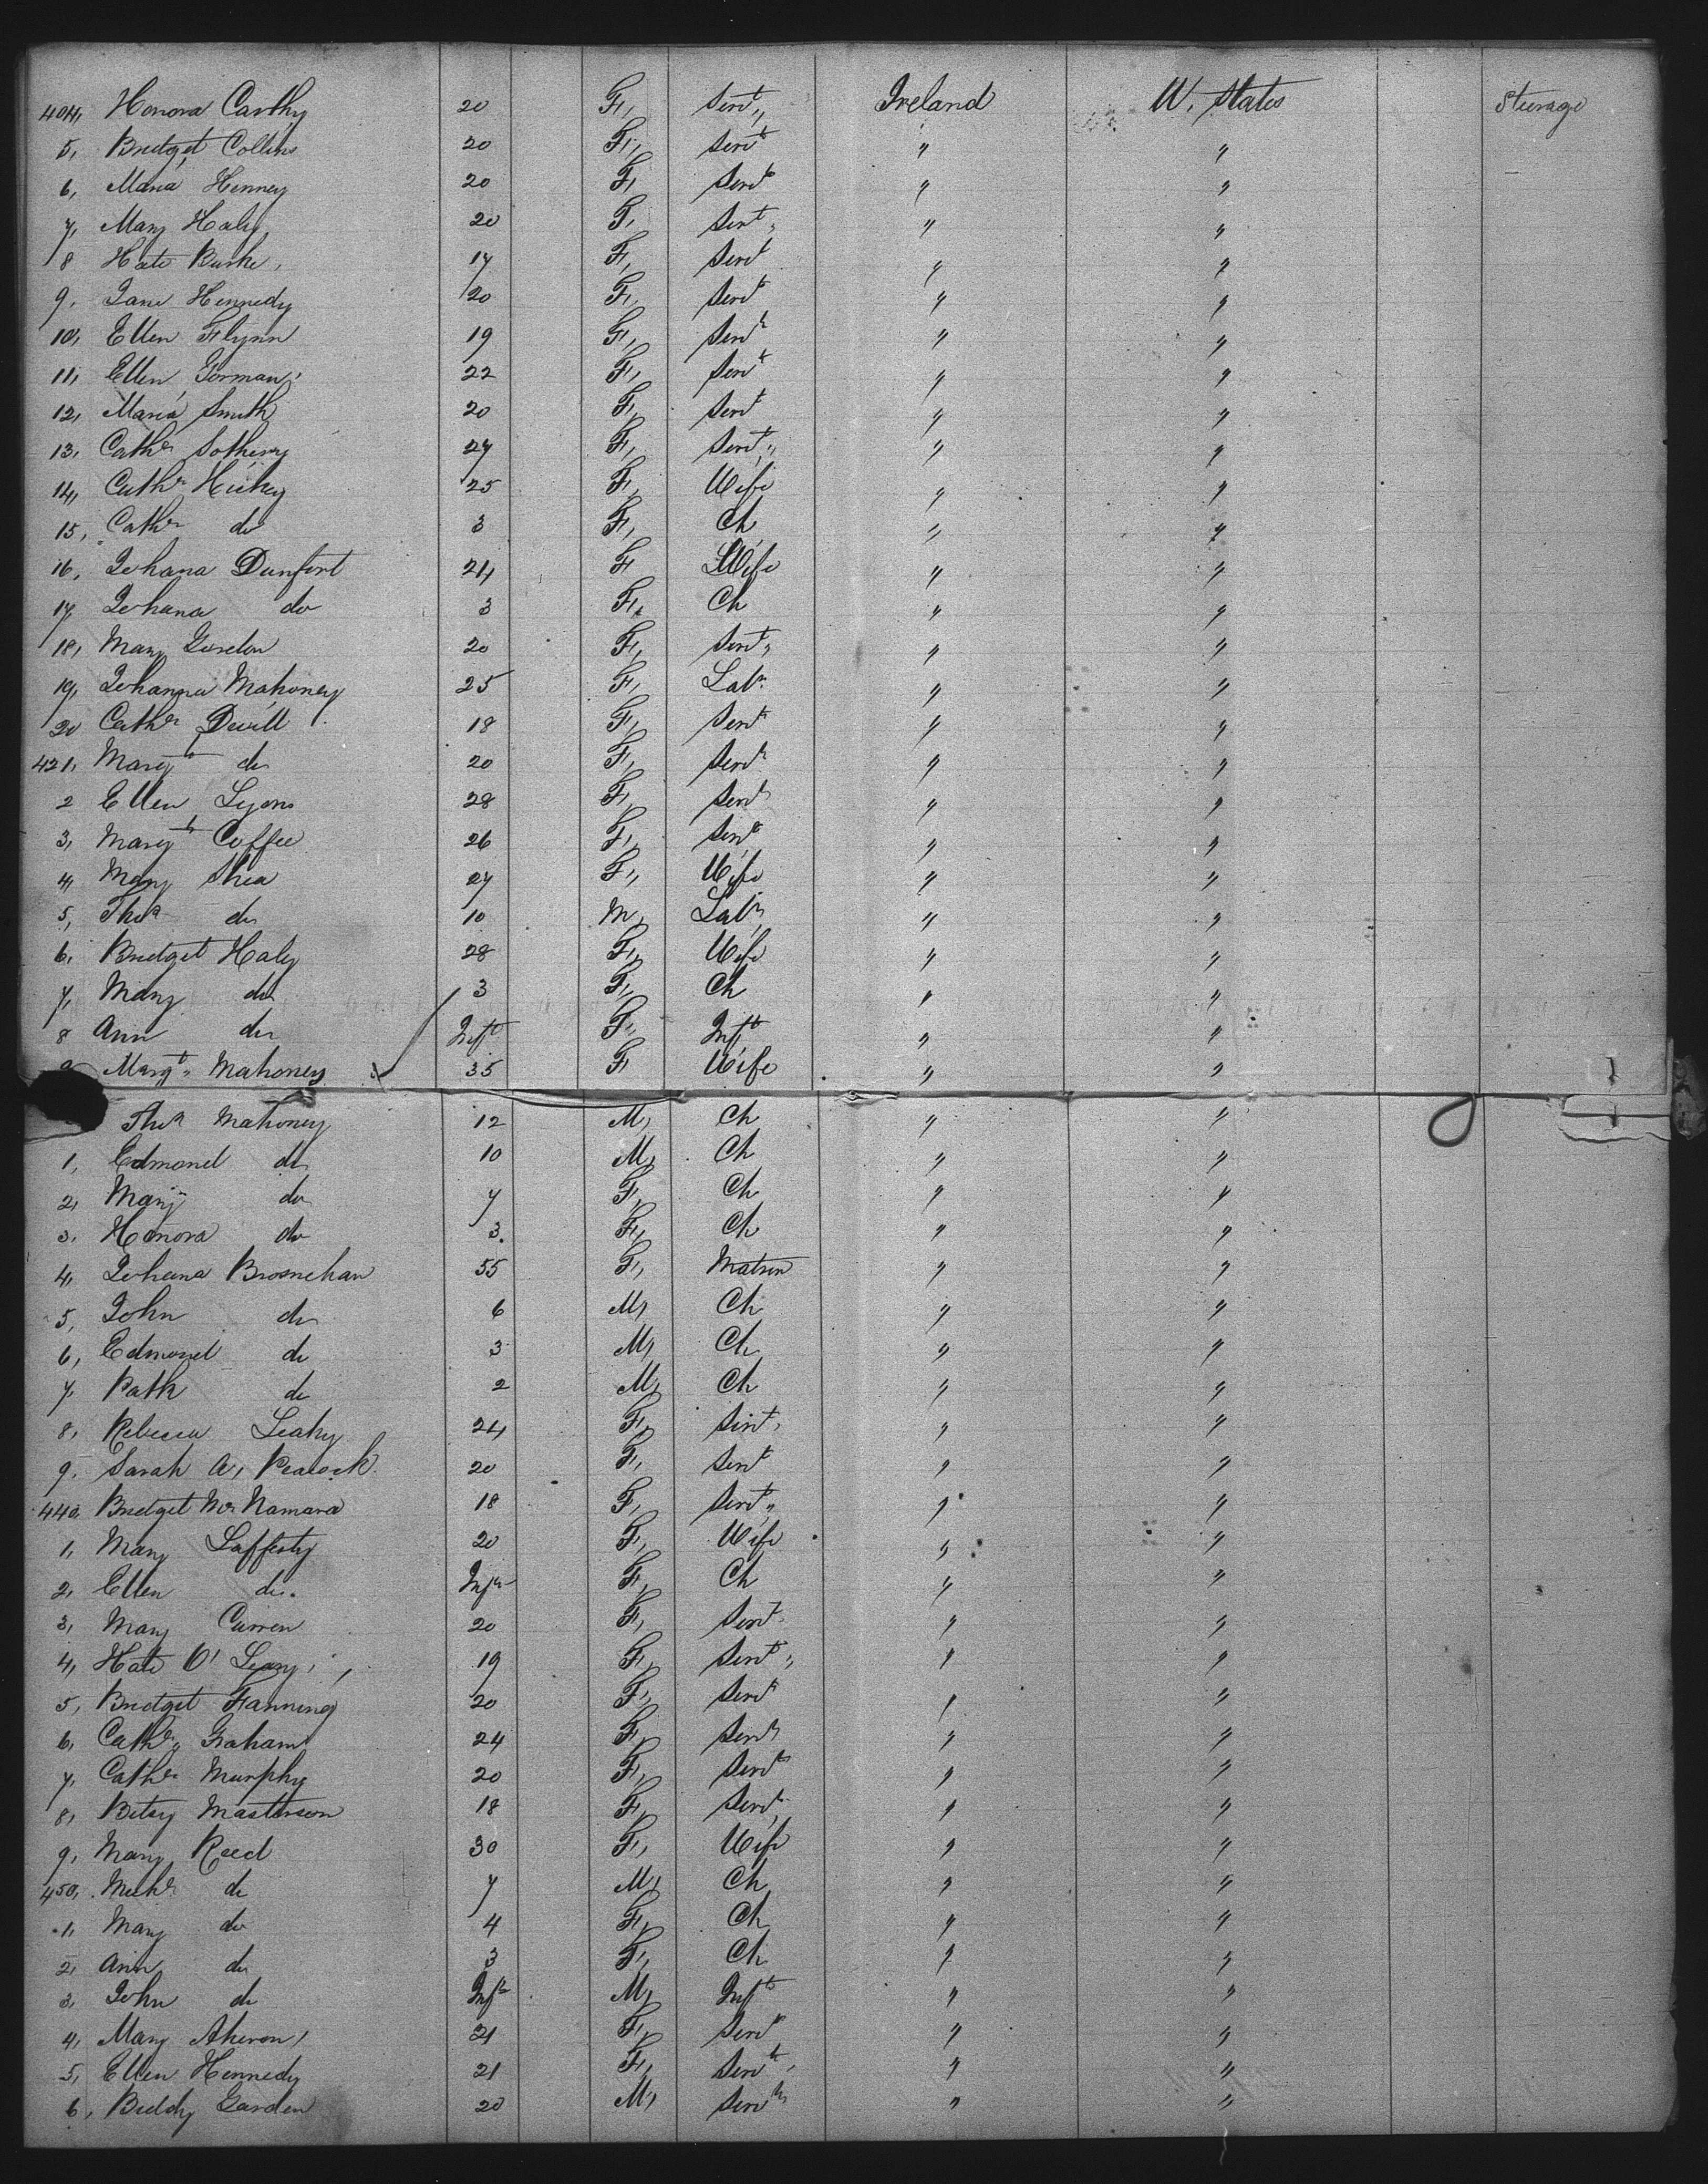 404, Honora Carthy 20 F, Servt,, Ireland U. States Steerage
5, Bridget Collins 20 F, Servt " "
6, Maria Kenney 20 F, Servt " "
7, Mary Haly, 20 F, Servt " "
8 Kate Burke, 17 F, Servt " "
9. Jane Kennedy 20 F, Servt " "
10, Ellen Flynn 19 F, Servt " "
11, Ellen Gorman, 22 F, Servt " "
12, Maria Smith 20 F, Servt " "
13, Cathe 27 F, Servt,, " "
14, Cathe Hickey 25 F, Wife " "
15, Cathe do 3 F, Ch " "
16, Johana Dunfort 24 F Wife " "
17, Johana do 3 F, Ch " "
18, Mary 20 F, Servt, " "
19, Johanna Mahoney 25 F, Labr " "
20 Cathe 18 F, Servt " "
421, Margt do 20 F, Servt " "
2 Ellen Lyons 28 F, Servt " "
3, Margt Coffee 26 F, Servt " "
4, Mary Shea 27 F, Wife " "
5, Thos do 10 M, Labr " "
6, Bridget Haly 28 F, Wife " "
7, Mary do 3 F, Ch " "
8 Ann do Inft F,, Inft " "
9 Margt,, Mahoney 35 F Wife " "
Thos Mahoney 12 M, Ch " "
1, Edmond do 10 M, Ch " "
2, Mary do 7 F, Ch " "
3, Honora do 3. F, Ch " "
4, Johana Brosnehan 55 F, Matron " "
5, John do 6 M, Ch " "
6, Edmond do 3 M, Ch " "
7, Patk do 2 M, Ch " "
8, Rebecca Leahy 24 F, Servt, " "
9. Sarah A, Peacock 20 F, Servt " "
440, Bridget Mc Namara 18 F, Servt,, " "
1, Mary Lafferty 20 F, Wife " "
2, Ellen do. Inft F, Ch " "
3, Mary Curren 20 F, Servt " "
4, Kate O' Leary, 19 F, Servt,, " "
5, Bridget Fanning 20 F, Servt " "
6, Cathe,, Graham 24 F, Servt " "
7, Cathe Murphy 20 F, Servt " "
8, Betsy Masterson 18 F, Servt " "
9, Mary Reed 30 F, Wife " "
450, Michl do 7 M, Ch " "
1, Mary do 4 F, Ch " "
2, Ann do 3 F, Ch " "
3, John do Inft M, Inft " "
4, Mary Aheron, 21 F, Servt " "
5, Ellen Kennedy 21 F, Servt, " "
6, Biddy Garden 20 M, Servt " "